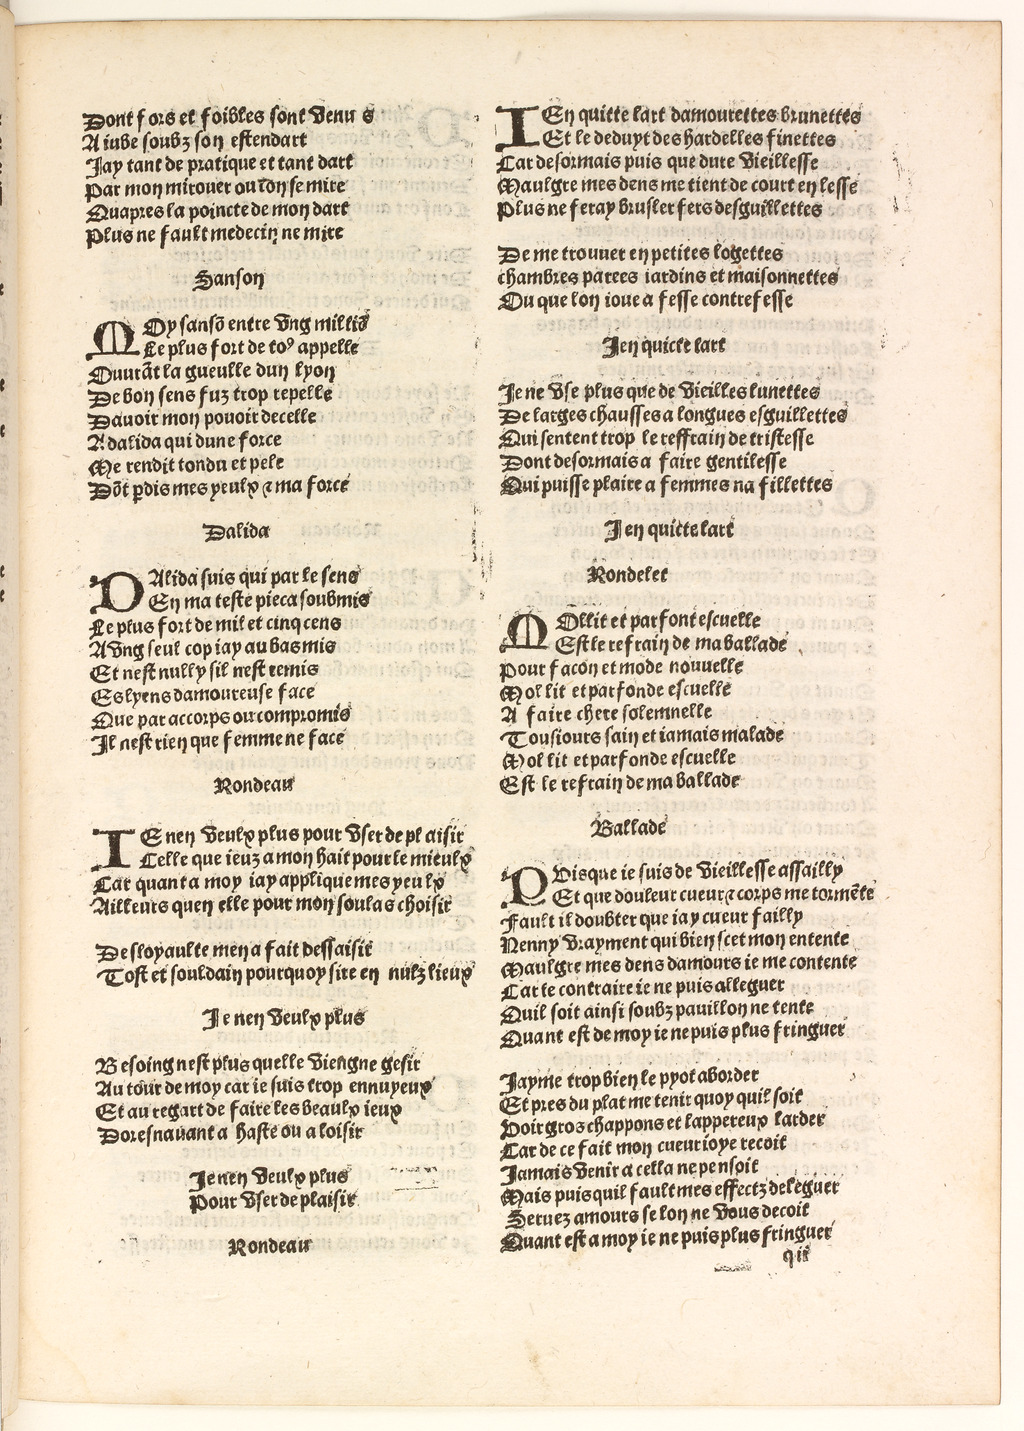 Dont fors et foibles sont venu s
A iube soubz son estendart
Jay tant de pratique et tant dart
Par mon mirouer ou lon se mire
Quapres la poincte de mon dart
Plus ne fault medecin ne mire
Sanson
MOy sansõ entre vng milliõ
Le plus fort de toꝰ appelle
Ouurãt la gueulle dun lyon
De bon sens fuz trop repelle
Dauoir mon pouoir decelle
A dalida qui dune force
Me rendit tondu et pele
Dõt pdis mes yeulx ⁊ ma force
Dalida
DAlida suis qui par le sens
En ma teste pieca soubmis
Le plus fort de mil et cinq cens
A vng seul cop iay au bas mis
Et nest nully sil nest remis
Es lyens damoureuse face
Que par accorps ou compromis
Il nest rien que femme ne face
Rondeau
IE nen veulx plus pour vser de pl aisir
Celle que ieuz a mon hait pour le mieulx
Car quant a moy iay applique mes yeu lx
Ailleurs quen elle pour mon soulas choisir
Desloyaulte men a fait dessaisir
Tost et souldain pourquoy sire en nulz lieux
Je nen veulx plus
Besoing nest plus quelle viengne gesir
Au tour de moy car ie suis trop ennuyeux
Et au regart de faire les beaulx ieux
Doresnauant a haste ou a loisir
Je nen veulx plus
Pour vser de plaisir
Rondeau
IEn quitte lart damourettes brunettes
Et le deduyt des hardelles finettes
Car desormais puis que dure vieillesse
Maulgre mes dens me tient de court en lesse
Plus ne feray brusler fers desguillettes
De me trouuer en petites logettes
chambres parees iardins et maisonnettes
Ou que lon ioue a fesse contrefesse
Jen quicte lart
Je ne vse plus que de vieilles lunettes
De larges chausses a longues esguillettes
Qui sentent trop le reffrain de tristesse
Dont desormais a faire gentilesse
Qui puisse plaire a femmes na fillettes
Jen quicte lart
Rondelet
MOl lit et parfont escuelle
Est le refrain de ma ballade
Pour facon et mode nouuelle
Mol lit et parfonde escuelle
A faire chere solemnelle
Tousiours sain et iamais malade
Mol lit et parfonde escuelle
Est le refrain de ma ballade
Ballade
PVisque ie suis de vieillesse assailly
Et que douleur cueur ⁊ corps me tormẽte
Fault il doubter que iay cueur failly
Nenny vrayment qui bien scet mon entente
Maulgre mes dens damours ie me contente
Car le contraire ie ne puis alleguer
Quil soit ainsi soubz pauillon ne tente
Quant est de moy ie ne puis plus fringuer
Jayme trop bien le pyot aborder
Et pres du plat me tenir quoy quil soit
Voir gros chappons et lappereux larder
Car de ce fait mon cueur ioye recoit
Jamais venir a cella ne pensoit
Mais puis quil fault mes effectz deleguer
Seruez amours se lon ne vous decoit
Quant est a moy ie ne puis plus fringuer
q ii